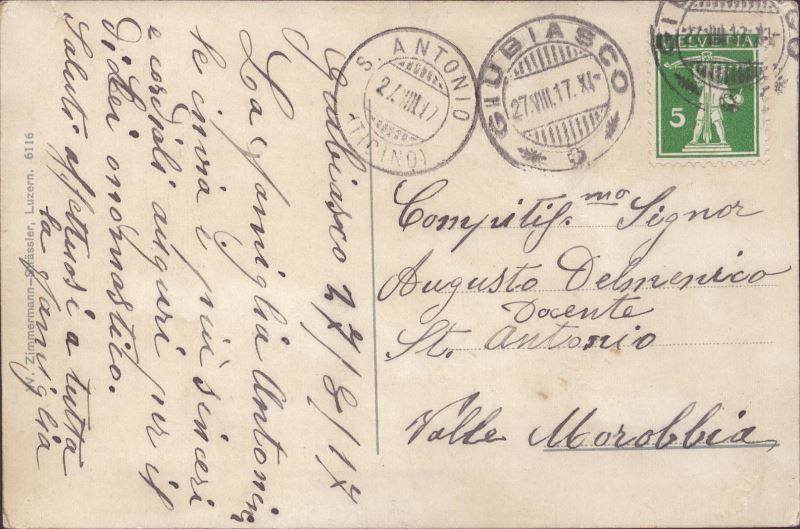 Giubiasco 27/8/17
La famiglia Antonini
le invia i più sinceri
e cordiali auguri per il
Di Lei onomastico.
Saluti affettuosi a tutta
la famiglia
N. Zimmermann-Strässler, Luzern. 6116
S. ANTONIO
27.VIII.17
(TICINO)
GIUBIASCO
27.VIII.17.XI-
GIUBIASCO
27.VIII.17.XI-
HELVETIA
5
Compitis.mo Signor
Augusto Delmenico
Docente
St. Antonio
Valle Morobbia